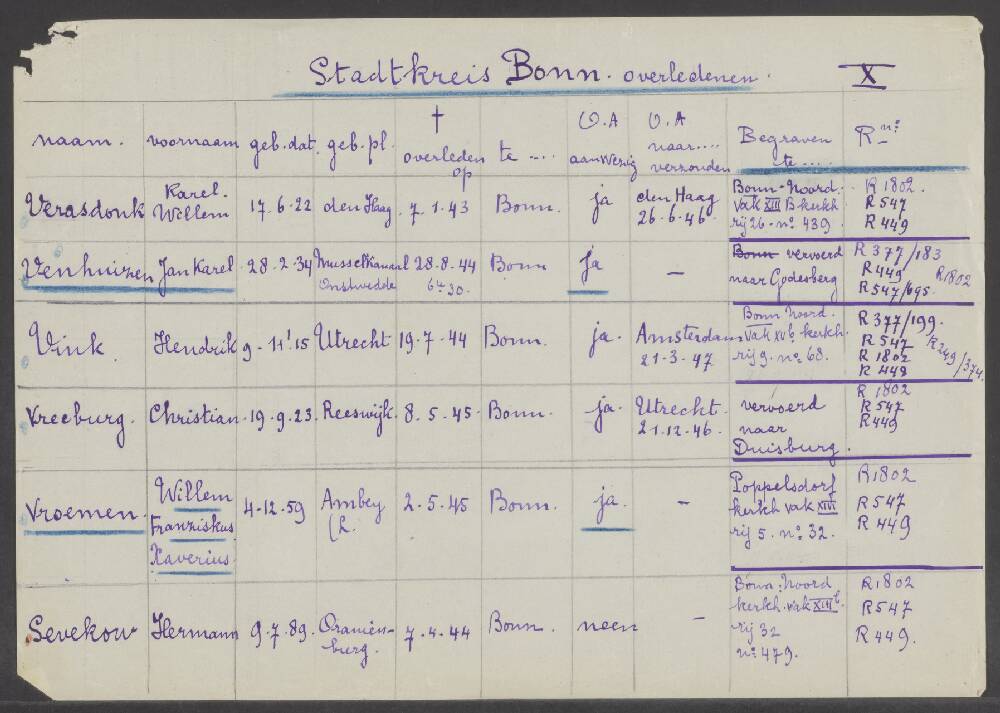 Stadtkreis Bonn. overledenen. X
naam. voornaam geb.dat. geb.pl. † overleden op te .... O.A aanwezig O.A naar.... verzonden Begraven te .... R nº
Verasdonk Karel. Willem 17.6.22 den Haag 7.1.43 Bonn. ja den Haag 26.6.46. Bonn-Noord. vak XIII B kerkh rij 26 - nº 439 R 1802. R 547 R 449
Venhuizen Jan Karel 28.2.34 Musselkanaal Onstwedde 28.8.44 6 u 30. Bonn ja — Bonn vervoerd naar Godesberg R 377/183 R 449 R1802 R 547/695.
Vink. Hendrik 9-11'15 Utrecht 19.7.44 Bonn. ja. Amsterdam 21.3.47 Bonn Noord. vak XV b kerkh. rij 9. nº 68. R 377/199. R 547 R 1802 R 449 R249/374.
Vreeburg. Christian 19.9.23. Reeswijk. 8.5.45. Bonn. ja. Utrecht. 21.12.46. vervoerd naar Duisburg. R 1802 R 547 R 449
Vroemen. Willem Franziskus Xaverius. 4-12.59 Ambey (L. 2.5.45 Bonn. ja. - Poppelsdorf kerkh vak XIVI rij 5. nº 32. R1802 R 547 R 449
Sevekow Hermann 9.7.89. Oranien-burg. 7.4.44 Bonn. neen - Bonn-Noord kerkh. vak XIII b rij 32 nº 479. R 1802 R 547 R 449.